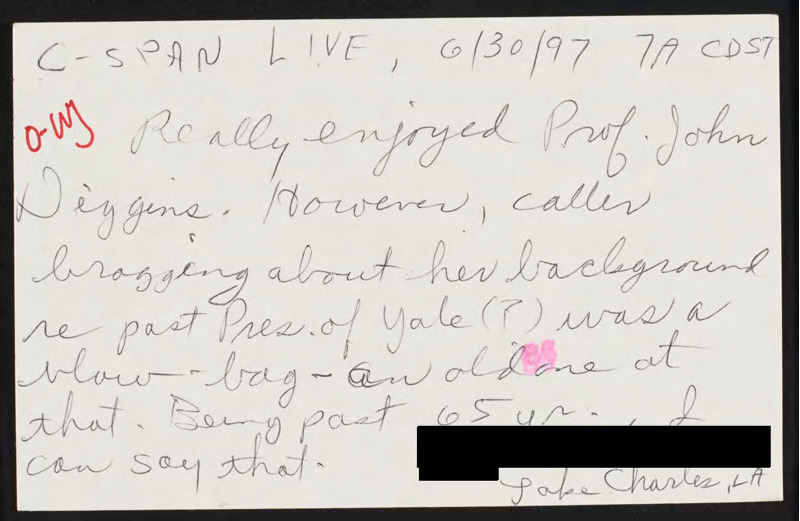 C-SPAN LIVE, 6/30/97 7A CDST
Really enjoyed Prof. John
Diggins. However, caller
bragging about her background
re past Pres. of Yale (?) was a
blow-bag - an old one at
that. Being past 65 yr., I
can say that.
Lake Charles, LA